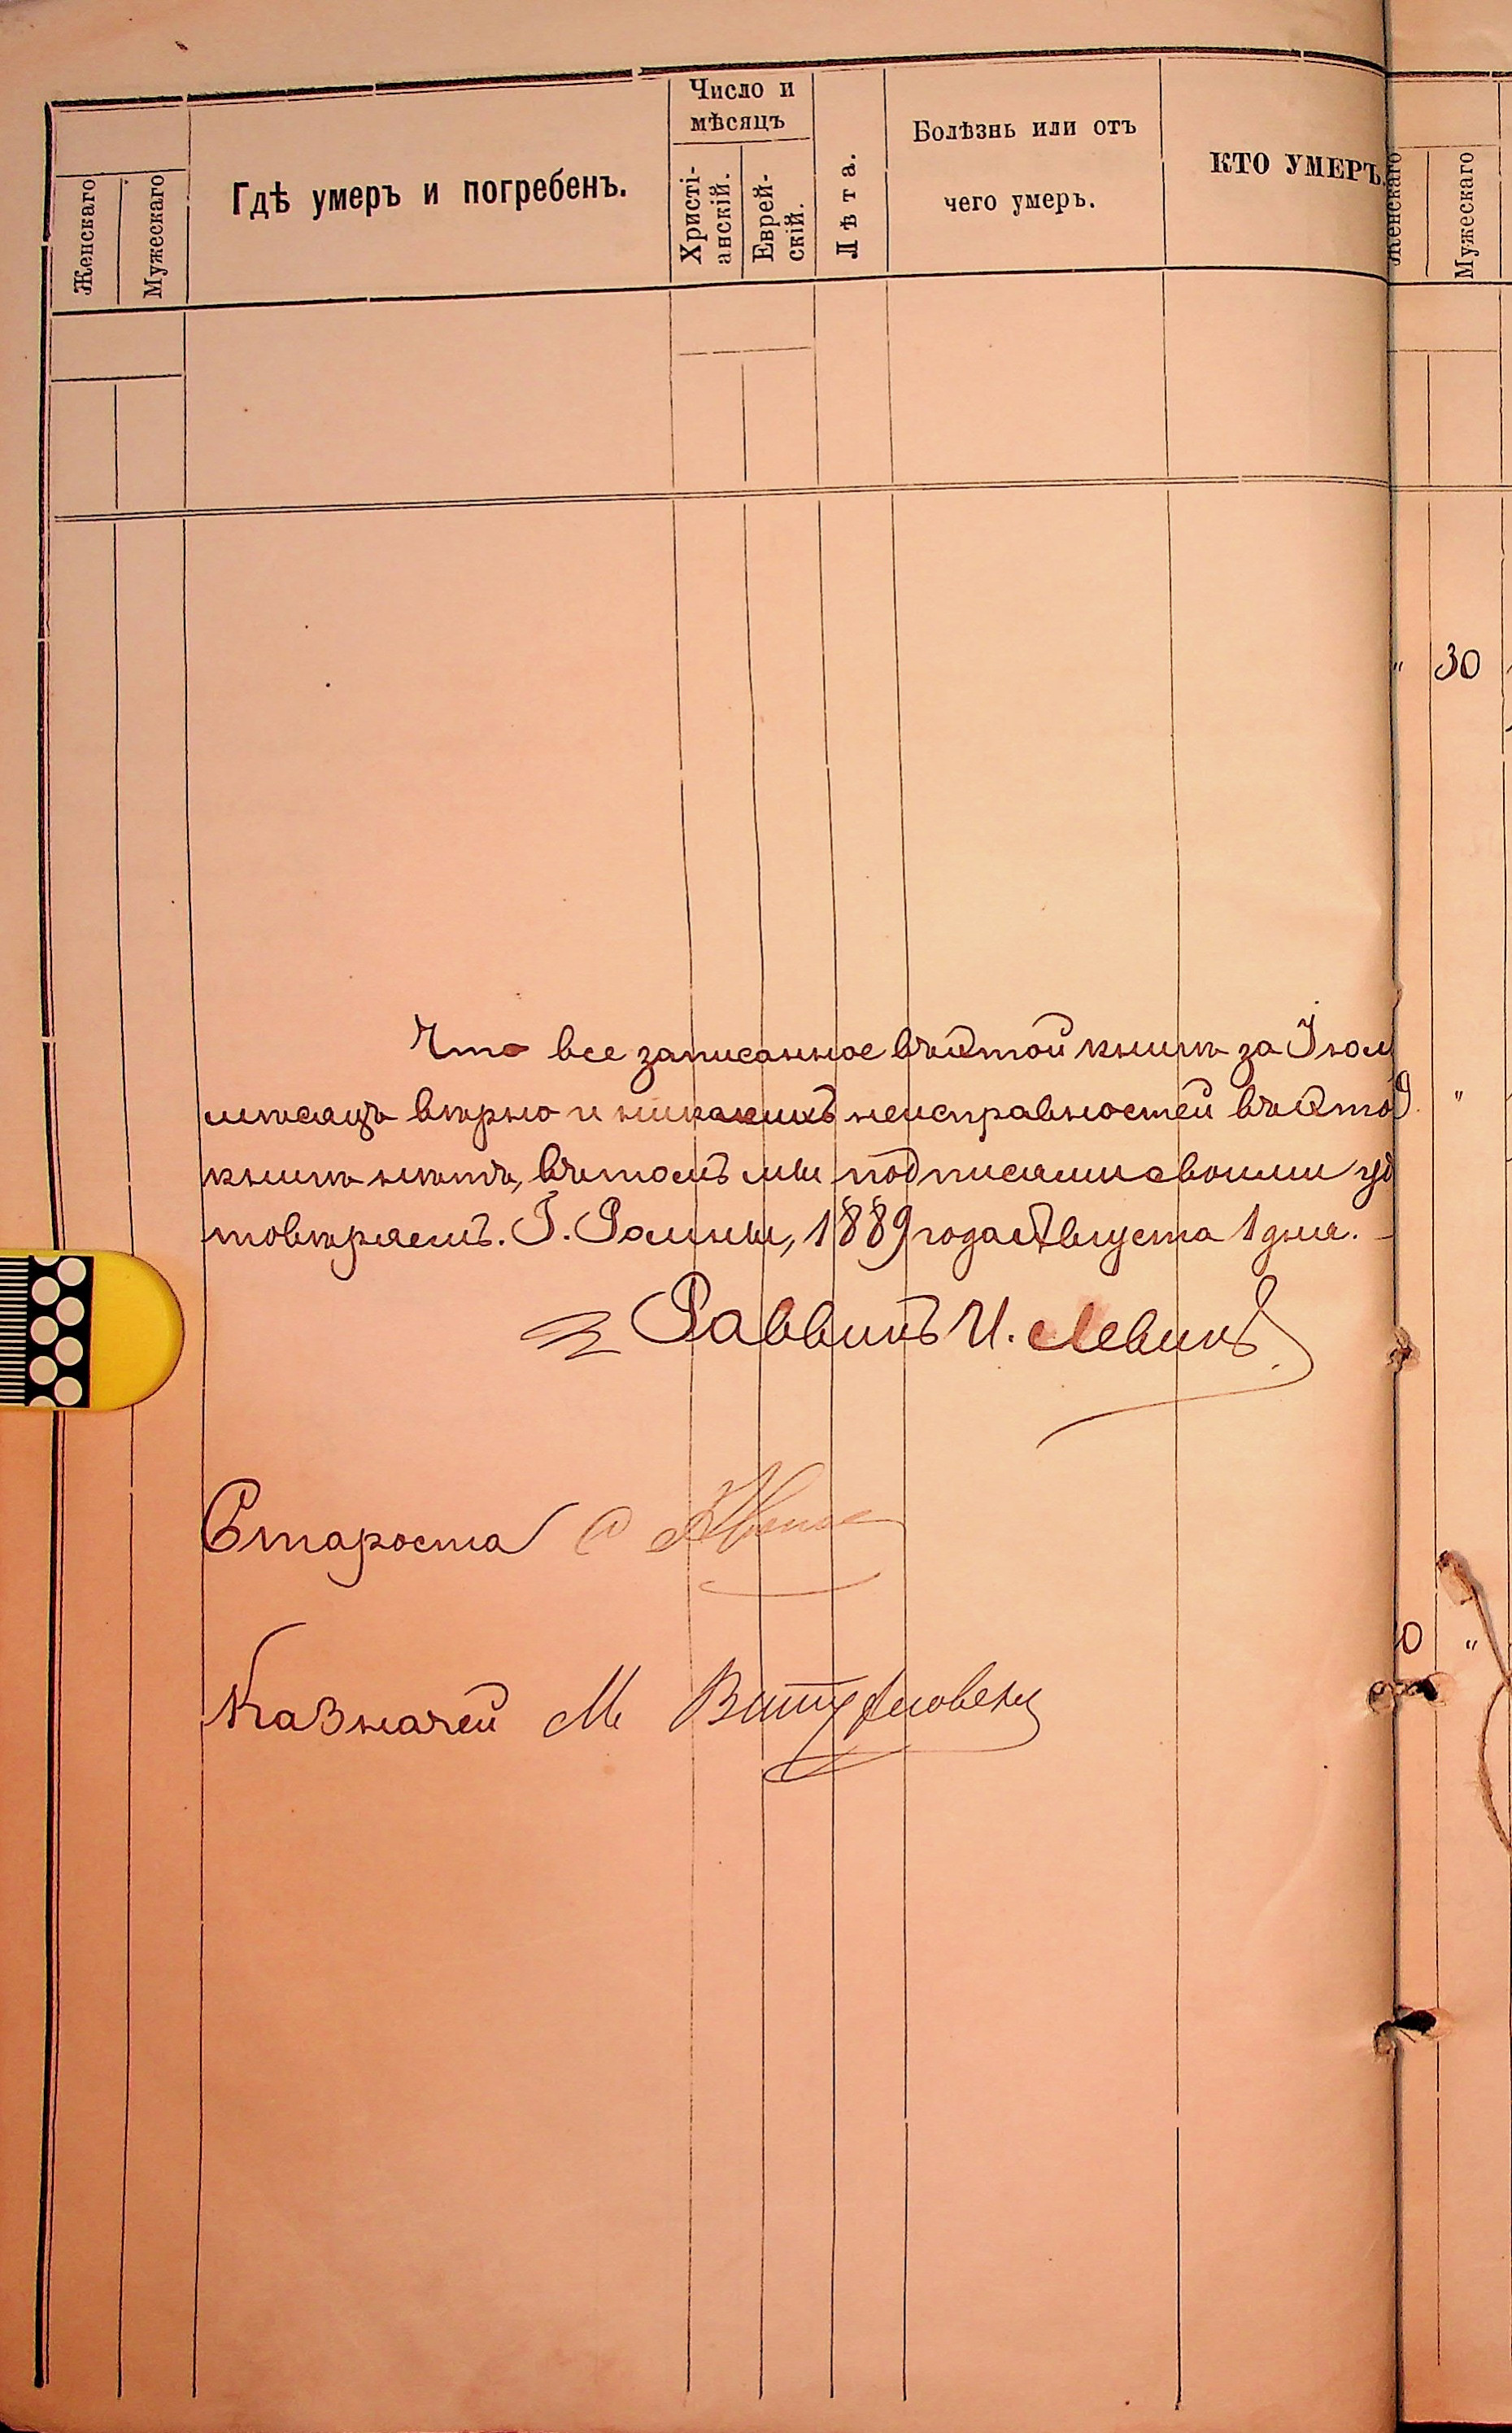 Число и
мѣсяцъ
Женскаго
Мужескаго
Гдѣ умеръ и погребенъ.
Христі-
анскій.
Еврей-
скій.
Лѣта.
Болѣзнь или отъ
чего умеръ.
КТО УМЕРЪ.
Женскаго
Мужескаго
30
Что все записанное въ этой книгѣ за Іюль
мѣсяцъ вѣрно и никакихъ неисправностей въ этой
книгѣ нѣтъ, въ томъ мы подписями своими удо
товѣряемъ. Г. Ромны, 1889 года Августа 1 дня.
Раввинъ И. Левинъ
Староста
Казначей М
0